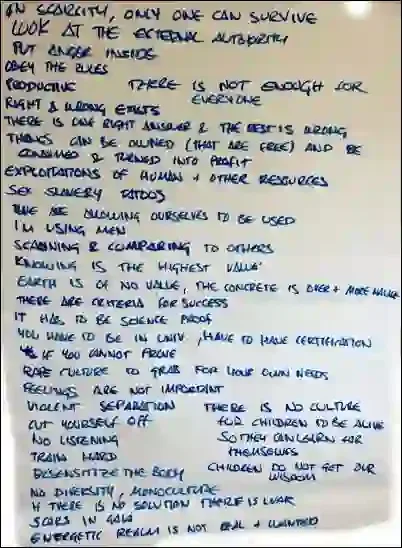 IN SCARCITY, ONLY ONE CAN SURVIVE
LOOK AT THE EXTERNAL AUTHORITY
PUT ANGER INSIDE
OBEY THE RULES
PRODUCTIVE THERE IS NOT ENOUGH FOR EVERYONE
RIGHT & WRONG EXISTS
THERE IS ONE RIGHT ANSWER & THE REST IS WRONG
THINGS CAN BE OWNED (THAT ARE FREE) AND BE
CONSUMED & TURNED INTO PROFIT
EXPLOITATIONS OF HUMAN + OTHER RESOURCES
SEX SLAVERY
WE ARE ALLOWING OURSELVES TO BE USED
I'M USING MEN
SCANNING & COMPARING TO OTHERS
KNOWING IS THE HIGHEST VALUE
EARTH IS OF NO VALUE, THE CONCRETE IS OVER + MORE
THERE ARE CRITERIA FOR SUCCESS
IT HAS TO BE SCIENCE PROOF
YOU HAVE TO BE IN UNIV, HAVE TO HAVE CERTIFICATION
IF YOU CANNOT PROVE
RAPE CULTURE TO GRAB FOR YOUR OWN NEEDS
FEELINGS ARE NOT IMPORTANT
VIOLENT SEPARATION THERE IS NO CULTURE
CUT YOURSELF OFF FOR CHILDREN TO BE ALIVE
NO LISTENING SO THEY CAN LEARN FOR
TRAIN HARD THEMSELVES
DESENSITIZE THE BODY CHILDREN DO NOT GET OUR WISDOM
NO DIVERSITY, MONOCULTURE
IF THERE IS NO SOLUTION THERE IS WAR
SCARS IN GAIA
ENERGETIC REALM IS NOT REAL +